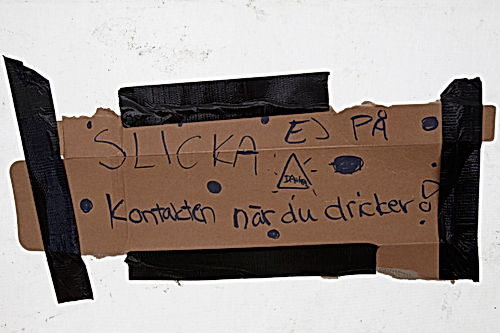 SLICKA EJ PÅ
Kontakten när du dricker!